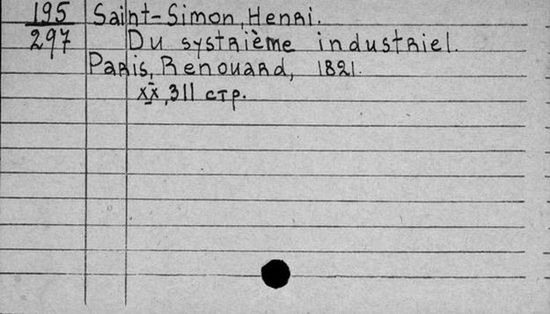 195 Saint-Simon, Henri.
297 Du systrième industriel.
Paris, Renouard, 1821.
XX, 311 стр.